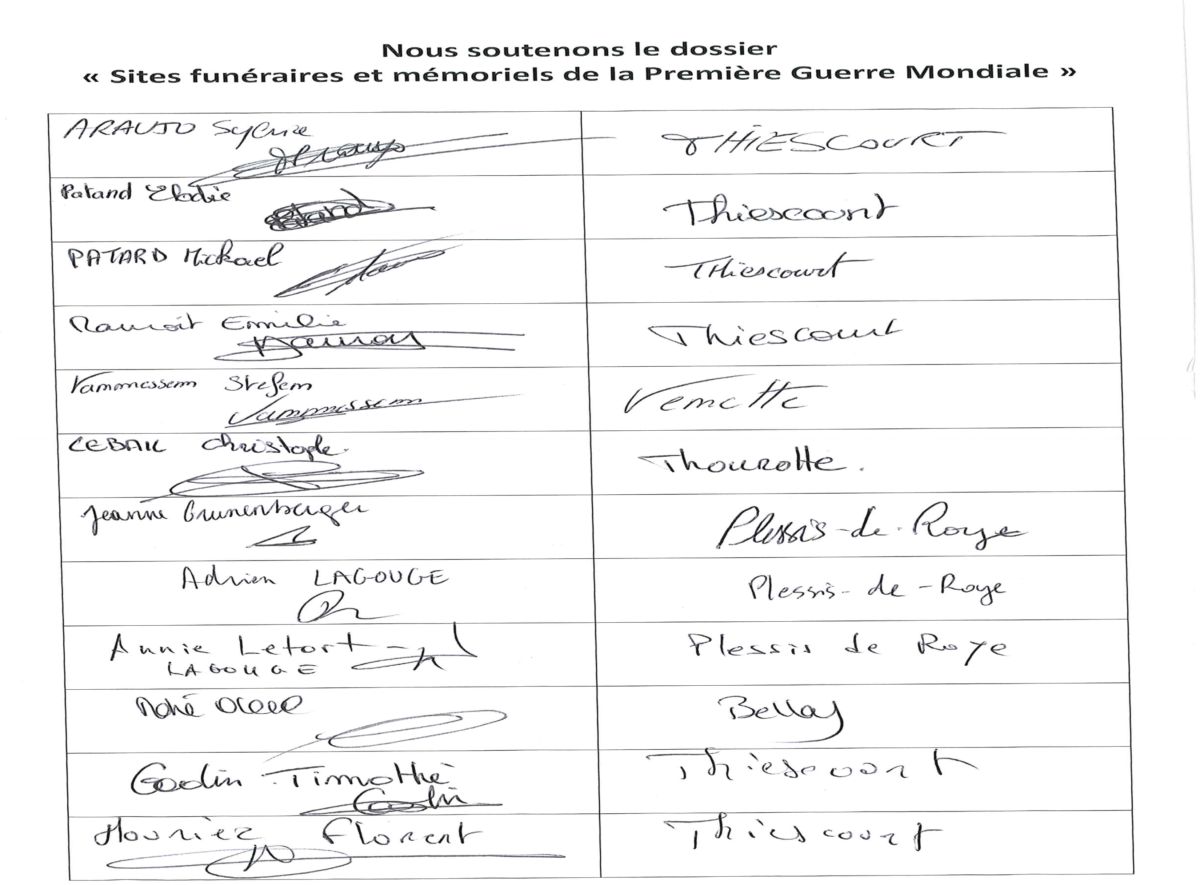 Nous soutenons le dossier
« Sites funéraires et mémoriels de la Première Guerre Mondiale »
ARAUJO Sylvie
THIESCOURT
Patard Elodie
Thiescourt
PATARD Mickael
Thiescourt
Emilie
Thiescourt
Vanmessem Stefem
Vanmessem
Vemette
LEBAIL Christophe.
Thourotte.
Jeanne Grunenberger
Plessis-de-Roye
Adrien LAGOUGE
Plessis-de-Roye
Annie Letort
LAGOUGE
Plessis de Roye
Bellay
Godin Timothé
Godin
Thiescourt
Houriez Florent
Thiescourt